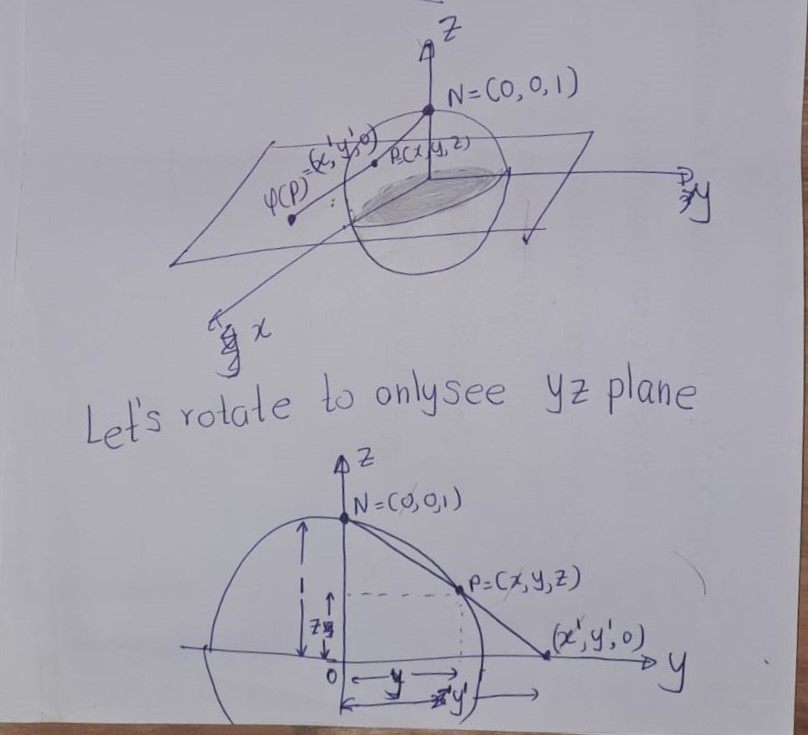 z
N=(0,0,1)
φ(P)=(x',y',0)
P=(x,y,z)
y
x
Let's rotate to only see yz plane
z
N=(0,0,1)
P=(x,y,z)
1
z
(x',y',0)
0
y
y
y'